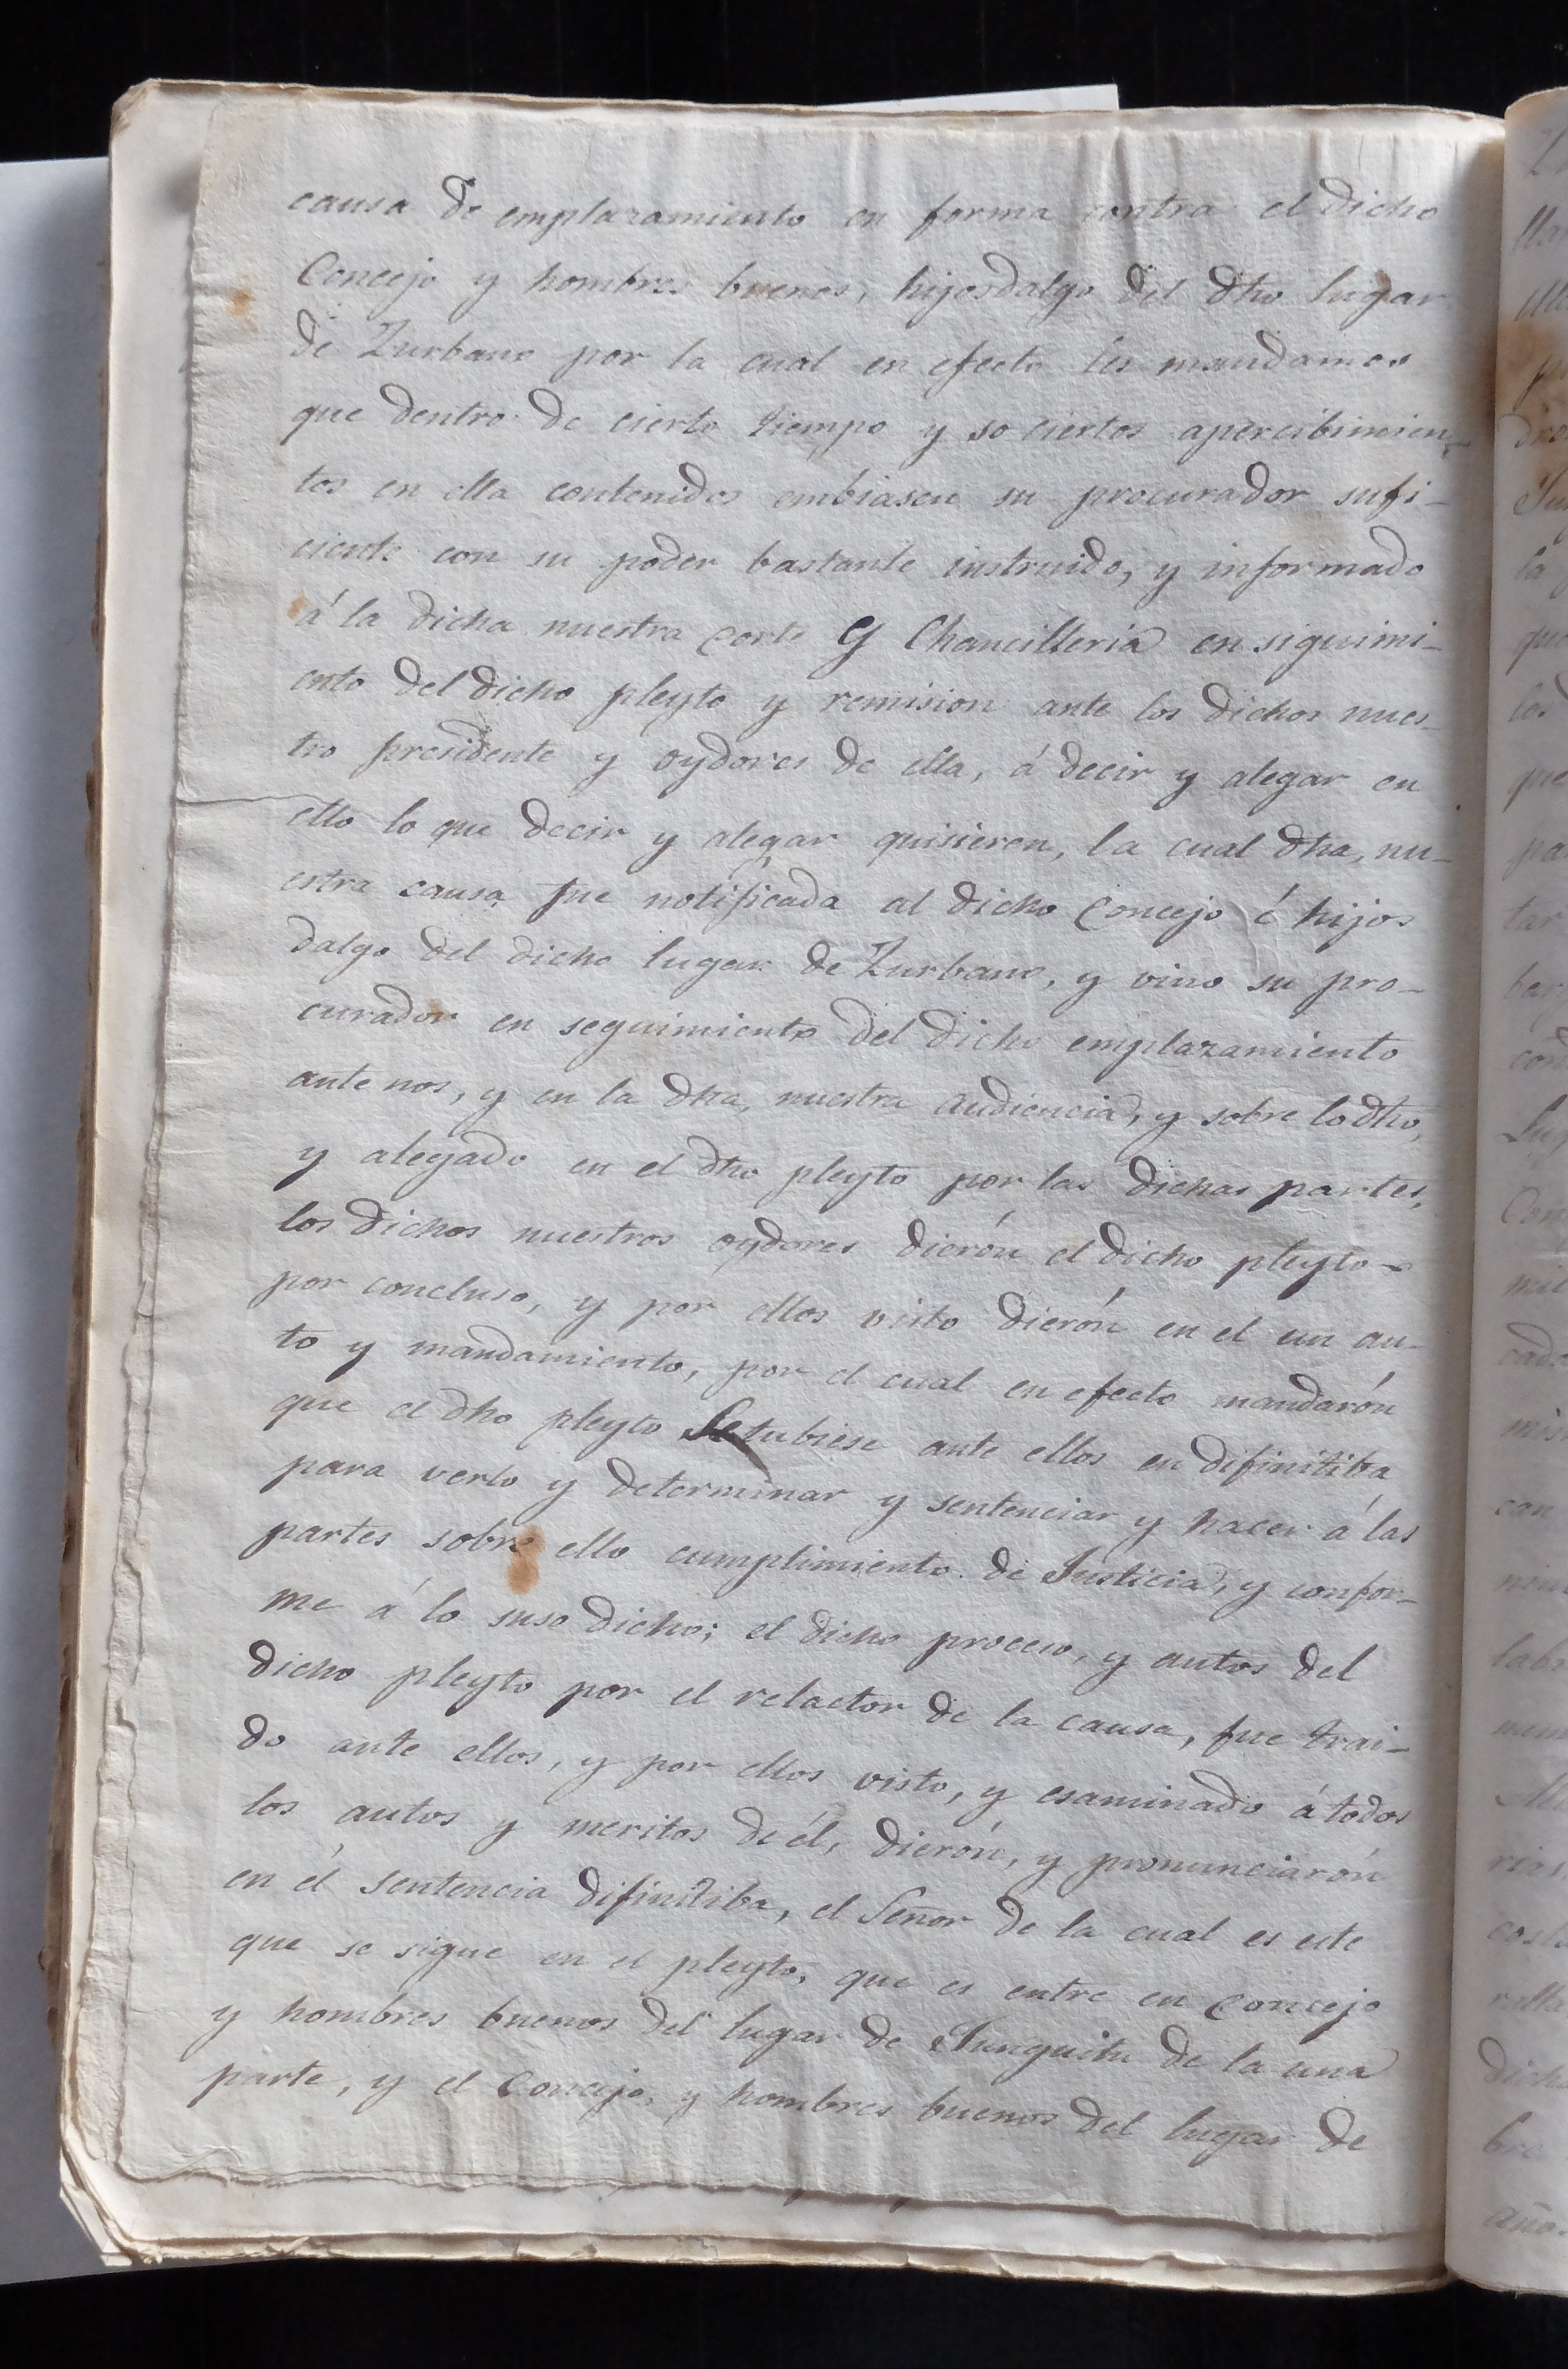 causa de emplazamiento en forma contra el dicho
Concejo y hombres buenos, hijosdalgo del dho lugar
de Zurbano por la cual en efecto les mandamos
que dentro de cierto tiempo y so ciertos apercibimien-
tos en ella contenidos embiasen su procurador sufi-
ciente con su poder bastante instruido, y informado
á la dicha nuestra corte y Chancilleria en siguimi-
ento del dicho pleyto y remision ante los dichos nues-
tro presidente y oydores de ella, á decir y alegar en
ello lo que decir y alegar quisieren, la cual dha, nu-
estra causa fue notificada al dicho Concejo é hijos
dalgo del dicho lugar de Zurbano, y vino su pro-
curador en seguimiento del dicho emplazamiento
ante nos, y en la dha, nuestra audiencia, y sobre lo dho,
y alegado en el dho pleyto por las dichas partes,
los dichos nuestros oydores dierón el dicho pleyto
por concluso, y por ellos visto dierón en el un au-
to y mandamiento, por el cual en efecto mandarón
que el dho pleyto Setubiese ante ellos en difinitiba
para verlo y determinar y sentenciar y hacer á las
partes sobre ello cumplimiento de Justicia, y confor-
me á lo suso dicho; el dicho proceso, y autos del
dicho pleyto por el relactor de la causa, fue trai-
do ante ellos, y por ellos visto, y esaminado á todos
los autos y meritos de él, dierón, y pronunciarón
en él sentencia difinitiba, el Señor de la cual es este
que se sigue en el pleyto, que es entre en Concejo
y hombres buenos del lugar de Junguitu de la una
parte, y el Concejo, y hombres buenos del lugar de